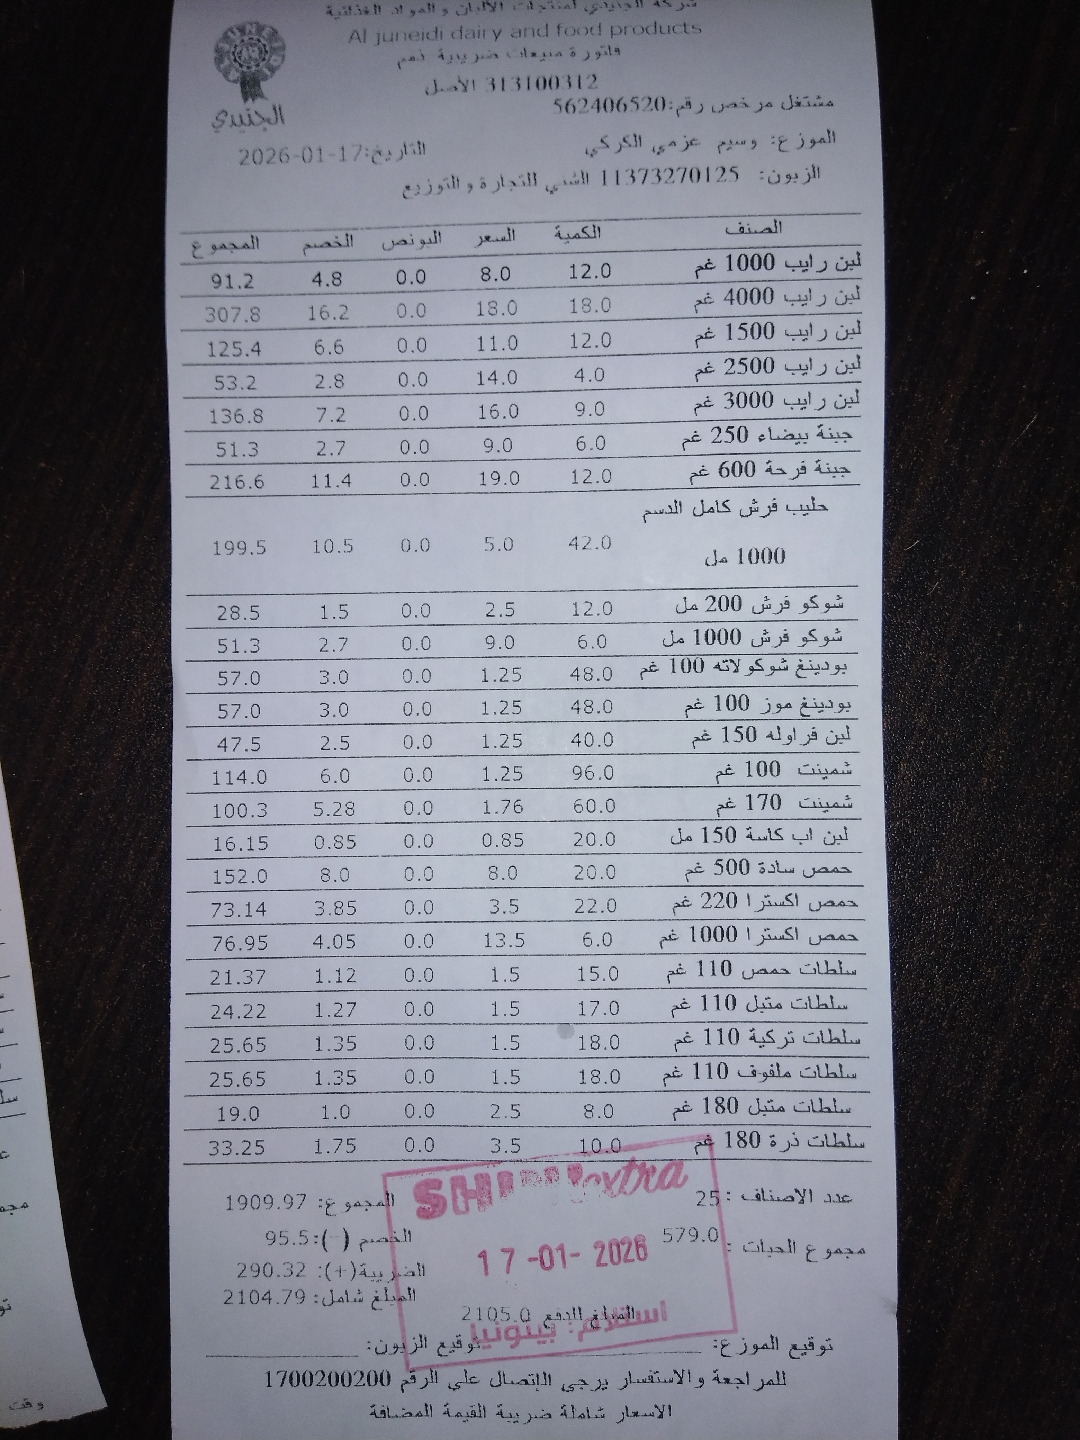 شركة الجنيدي لمنتجات الألبان و المواد الغذائية
Al juneidi dairy and food products
فاتورة مبيعات ضريبية ذمم
313100312 الأصل
الجنيدي
مشتغل مرخص رقم:562406520
الموزع: وسيم عزمي الكركي التاريخ:17-01-2026
الزبون: 11373270125 الشني للتجارة و التوزيع
الصنف الكمية السعر البونص الخصم المجموع
لبن رايب 1000 غم 12.0 8.0 0.0 4.8 91.2
لبن رايب 4000 غم 18.0 18.0 0.0 16.2 307.8
لبن رايب 1500 غم 12.0 11.0 0.0 6.6 125.4
لبن رايب 2500 غم 4.0 14.0 0.0 2.8 53.2
لبن رايب 3000 غم 9.0 16.0 0.0 7.2 136.8
جبنة بيضاء 250 غم 6.0 9.0 0.0 2.7 51.3
جبنة فرحة 600 غم 12.0 19.0 0.0 11.4 216.6
حليب فرش كامل الدسم
1000 مل 42.0 5.0 0.0 10.5 199.5
شوكو فرش 200 مل 12.0 2.5 0.0 1.5 28.5
شوكو فرش 1000 مل 6.0 9.0 0.0 2.7 51.3
بودينغ شوكولاته 100 غم 48.0 1.25 0.0 3.0 57.0
بودينغ موز 100 غم 48.0 1.25 0.0 3.0 57.0
لبن فراوله 150 غم 40.0 1.25 0.0 2.5 47.5
شمينت 100 غم 96.0 1.25 0.0 6.0 114.0
شمينت 170 غم 60.0 1.76 0.0 5.28 100.3
لبن اب كاسة 150 مل 20.0 0.85 0.0 0.85 16.15
حمص سادة 500 غم 20.0 8.0 0.0 8.0 152.0
حمص اكسترا 220 غم 22.0 3.5 0.0 3.85 73.14
حمص اكسترا 1000 غم 6.0 13.5 0.0 4.05 76.95
سلطات حمص 110 غم 15.0 1.5 0.0 1.12 21.37
سلطات متبل 110 غم 17.0 1.5 0.0 1.27 24.22
سلطات تركية 110 غم 18.0 1.5 0.0 1.35 25.65
سلطات ملفوف 110 غم 18.0 1.5 0.0 1.35 25.65
سلطات متبل 180 غم 8.0 2.5 0.0 1.0 19.0
سلطات ذرة 180 غم 10.0 3.5 0.0 1.75 33.25
عدد الاصناف : 25 المجموع: 1909.97
extra
مجموع الحبات : 579.0 الخصم (-):95.5
17-01-2026
الضريبة(+): 290.32
المبلغ شامل: 2104.79
المبلغ للدفع 2105.0
استلام: بيتونيا
توقيع الموزع: توقيع الزبون:
للمراجعة والاستفسار يرجى الإتصال على الرقم 1700200200
الاسعار شاملة ضريبة القيمة المضافة
وقت